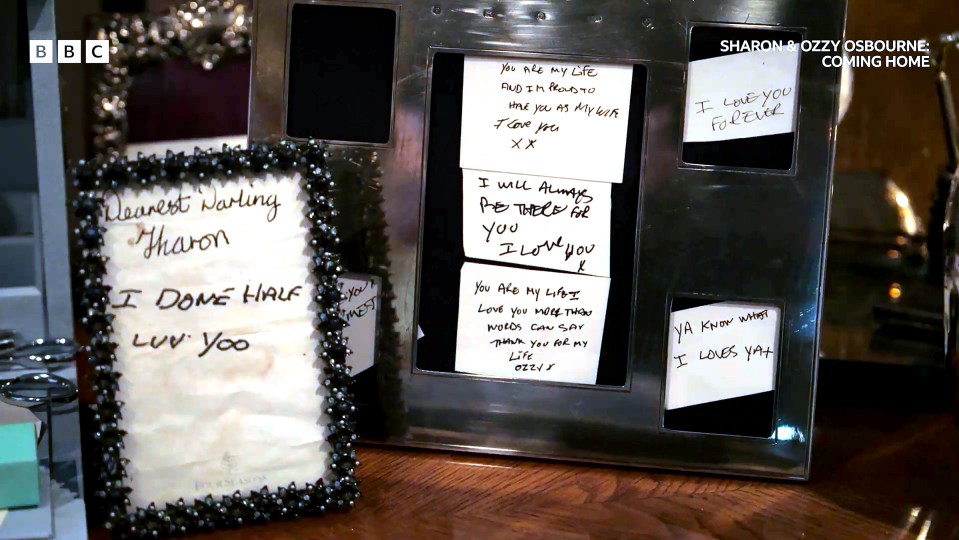 BBC
SHARON & OZZY OSBOURNE:
COMING HOME
Dearest Darling
Sharon
I DONE HALF
LUV YOO
FOUR SEASONS
YOU ARE MY LIFE
AND IM PROUD TO
HAVE YOU AS MY WIFE
I love you
X X
I WILL ALWAYS
BE THERE FOR
YOU
I LOVE YOU
X
YOU ARE MY LIFE I
LOVE YOU MORE THAN
WORDS CAN SAY
THANK YOU FOR MY
LIFE
OZZY X
I LOVE YOU
FOREVER
YA KNOW WHAT
I LOVES YA X